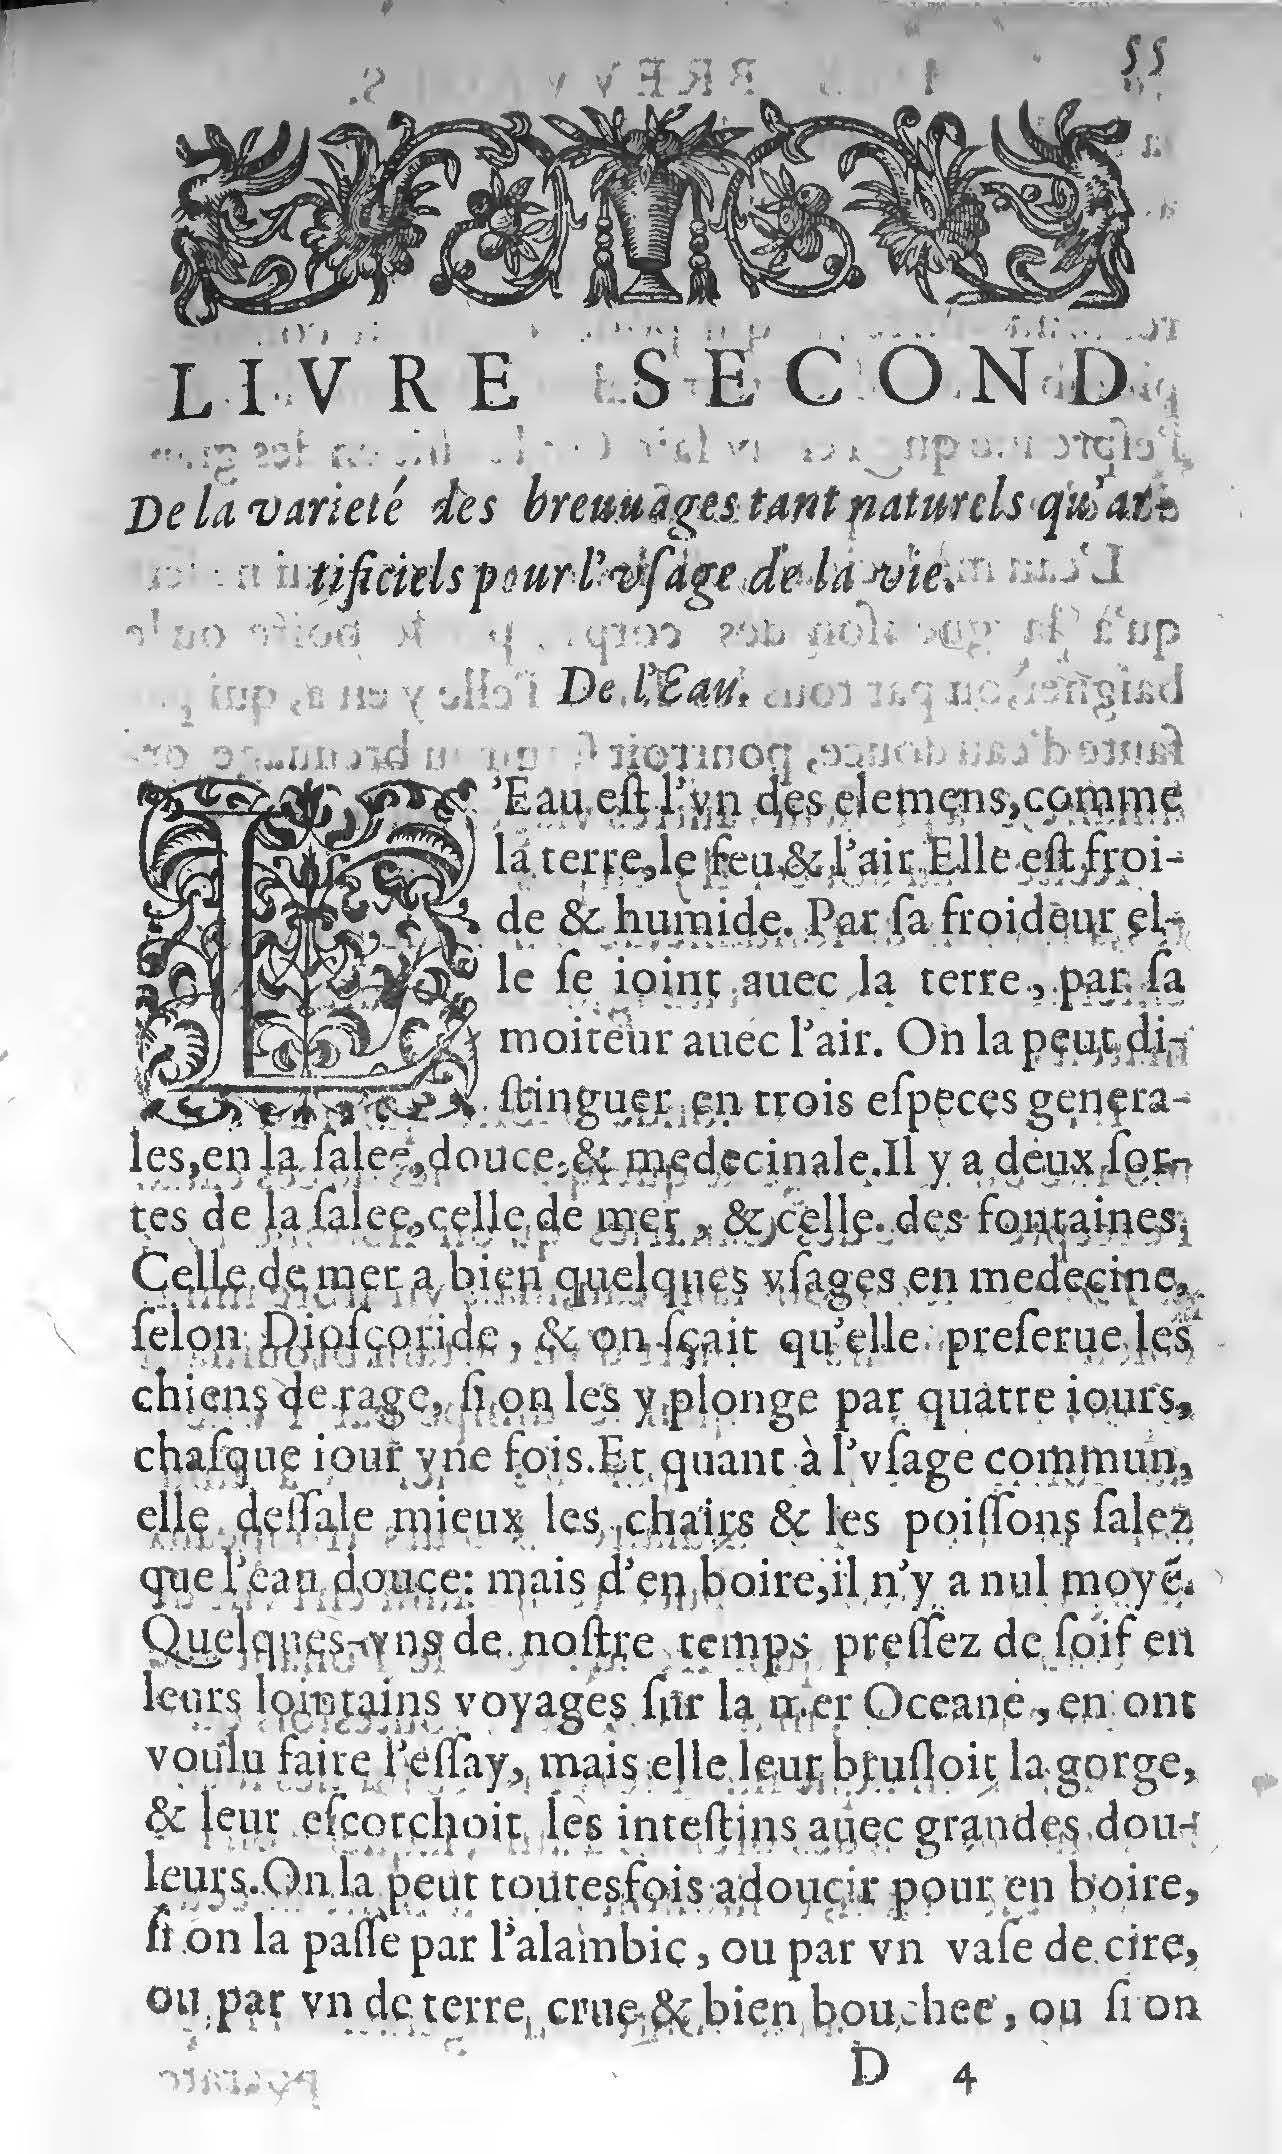 55
LIVRE SECOND
De la varieté des breuuages tant naturels qu'ar-
tificiels pour l'vſage de la vie.
De l'Eau.
L'Eau eſt l'vn des elemens, comme
la terre, le feu, & l'air. Elle eſt froi-
de & humide. Par ſa froideur el-
le ſe ioint auec la terre, par ſa
moiteur auec l'air. On la peut di-
ſtinguer en trois eſpeces genera-
les, en la ſalee, douce, & medecinale. Il y a deux ſor-
tes de la ſalee, celle de mer, & celle des fontaines.
Celle de mer a bien quelques vſages en medecine,
ſelon Dioſcoride, & on ſçait qu'elle preſerue les
chiens de rage, ſi on les y plonge par quatre iours,
chaſque iour vne fois. Et quant à l'vſage commun,
elle deſſale mieux les chairs & les poiſſons ſalez
que l'eau douce: mais d'en boire, il n'y a nul moyẽ.
Quelques-vns de noſtre temps preſſez de ſoif en
leurs lointains voyages ſur la mer Oceane, en ont
voulu faire l'eſſay, mais elle leur bruſloit la gorge,
& leur eſcorchoit les inteſtins auec grandes dou-
leurs. On la peut toutesfois adoucir pour en boire,
ſi on la paſſe par l'alambic, ou par vn vaſe de cire,
ou par vn de terre crue & bien bouchee, ou ſi on
D 4